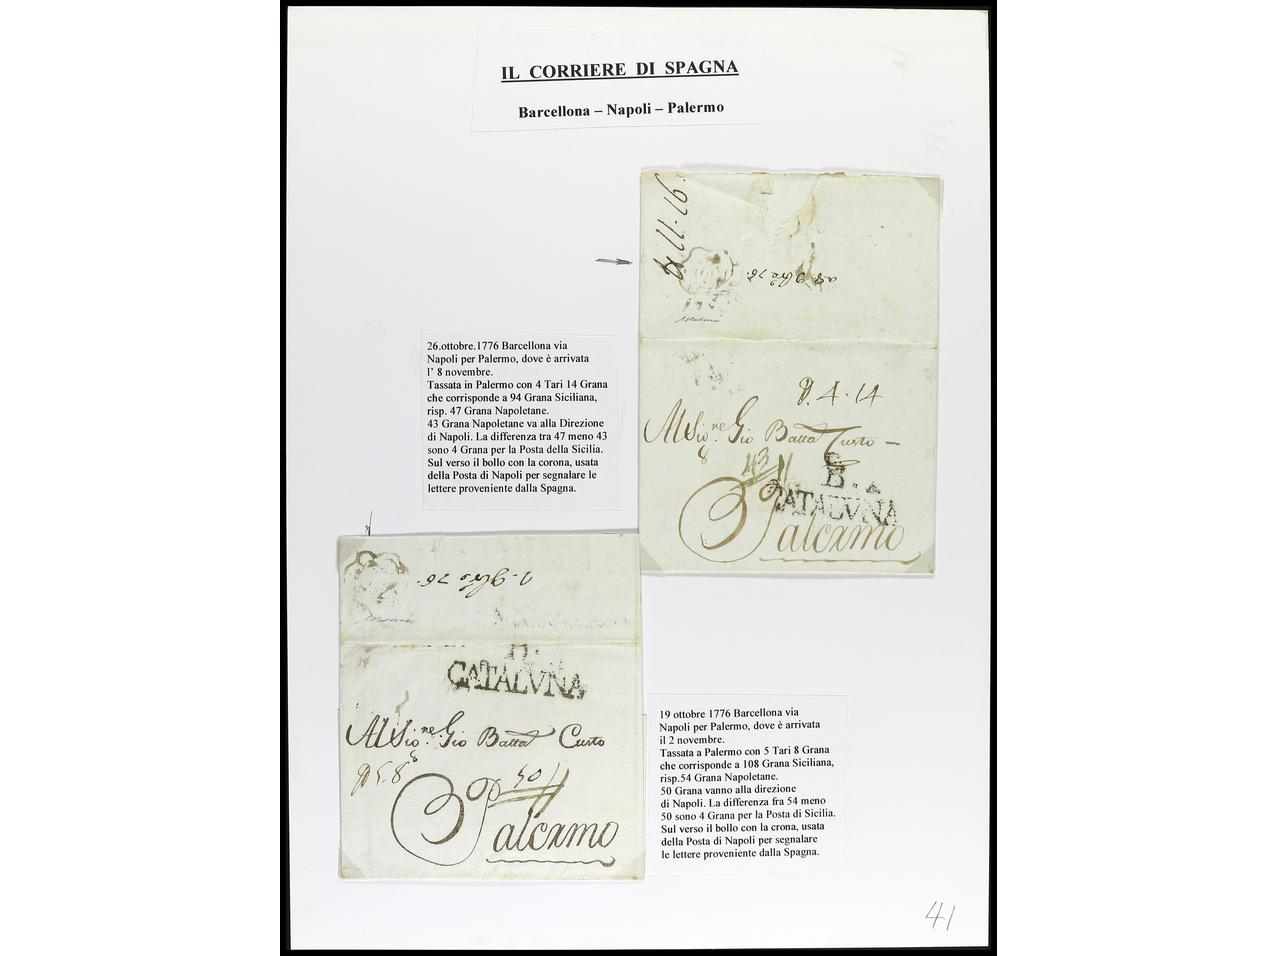 IL CORRIERE DI SPAGNA
Barcellona – Napoli – Palermo
26.ottobre.1776 Barcellona via
Napoli per Palermo, dove è arrivata
l' 8 novembre.
Tassata in Palermo con 4 Tari 14 Grana
che corrisponde a 94 Grana Siciliana,
risp. 47 Grana Napoletane.
43 Grana Napoletane va alla Direzione
di Napoli. La differenza tra 47 meno 43
sono 4 Grana per la Posta della Sicilia.
Sul verso il bollo con la corona, usata
della Posta di Napoli per segnalare le
lettere proveniente dalla Spagna.
.4.14
Al Sio.ne Gio Batta Custo
8
43
B.
CATALVNA
Palermo
B.
CATALVNA
Al Sio.ne Gio Batta Custo
5.8 8
50
Palermo
19 ottobre 1776 Barcellona via
Napoli per Palermo, dove è arrivata
il 2 novembre.
Tassata a Palermo con 5 Tari 8 Grana
che corrisponde a 108 Grana Siciliana,
risp.54 Grana Napoletane.
50 Grana vanno alla direzione
di Napoli. La differenza fra 54 meno
50 sono 4 Grana per la Posta di Sicilia.
Sul verso il bollo con la crona, usata
della Posta di Napoli per segnalare
le lettere proveniente dalla Spagna.
41